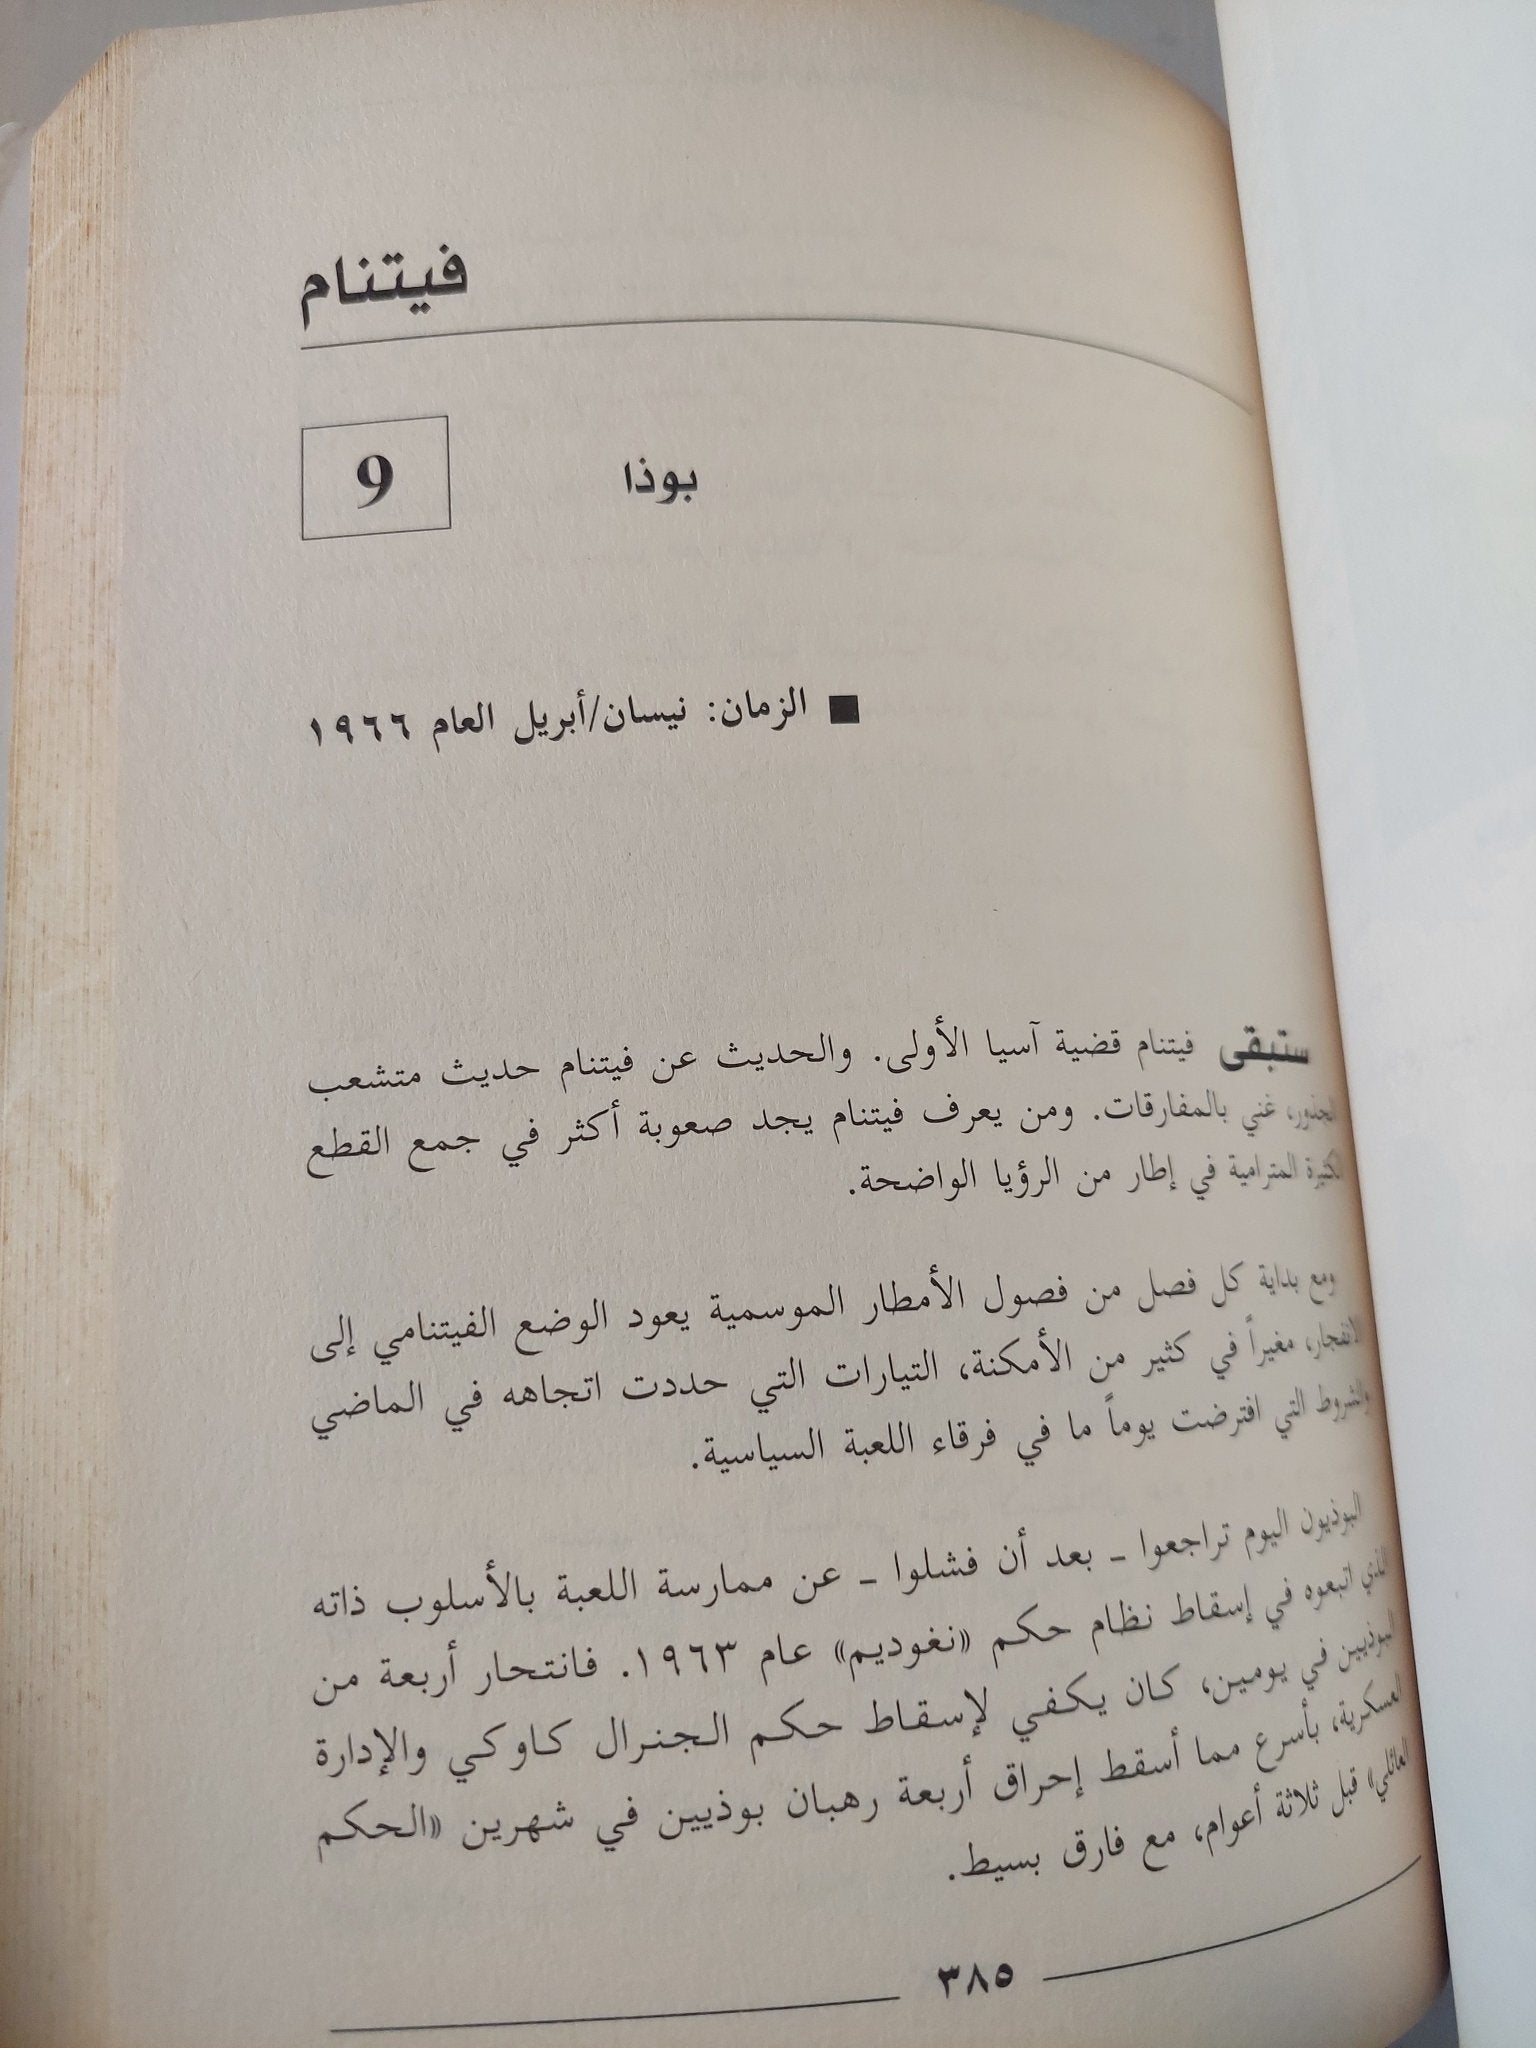 فيتنام
9
بوذا
■ الزمان: نيسان/أبريل العام ١٩٦٦
ستبقى فيتنام قضية آسيا الأولى. والحديث عن فيتنام حديث متشعب
الجذور، غني بالمفارقات. ومن يعرف فيتنام يجد صعوبة أكثر في جمع القطع
الكثيرة المترامية في إطار من الرؤيا الواضحة.
ومع بداية كل فصل من فصول الأمطار الموسمية يعود الوضع الفيتنامي إلى
الانفجار، مغيراً في كثير من الأمكنة، التيارات التي حددت اتجاهه في الماضي
والشروط التي افترضت يوماً ما في فرقاء اللعبة السياسية.
البوذيون اليوم تراجعوا ـ بعد أن فشلوا ـ عن ممارسة اللعبة بالأسلوب ذاته
الذي اتبعوه في إسقاط نظام حكم «نغوديم» عام ١٩٦٣. فانتحار أربعة من
البوذيين في يومين، كان يكفي لإسقاط حكم الجنرال كاوكي والإدارة
العسكرية، بأسرع مما أسقط إحراق أربعة رهبان بوذيين في شهرين «الحكم
العائلي» قبل ثلاثة أعوام، مع فارق بسيط.
٣٨٥